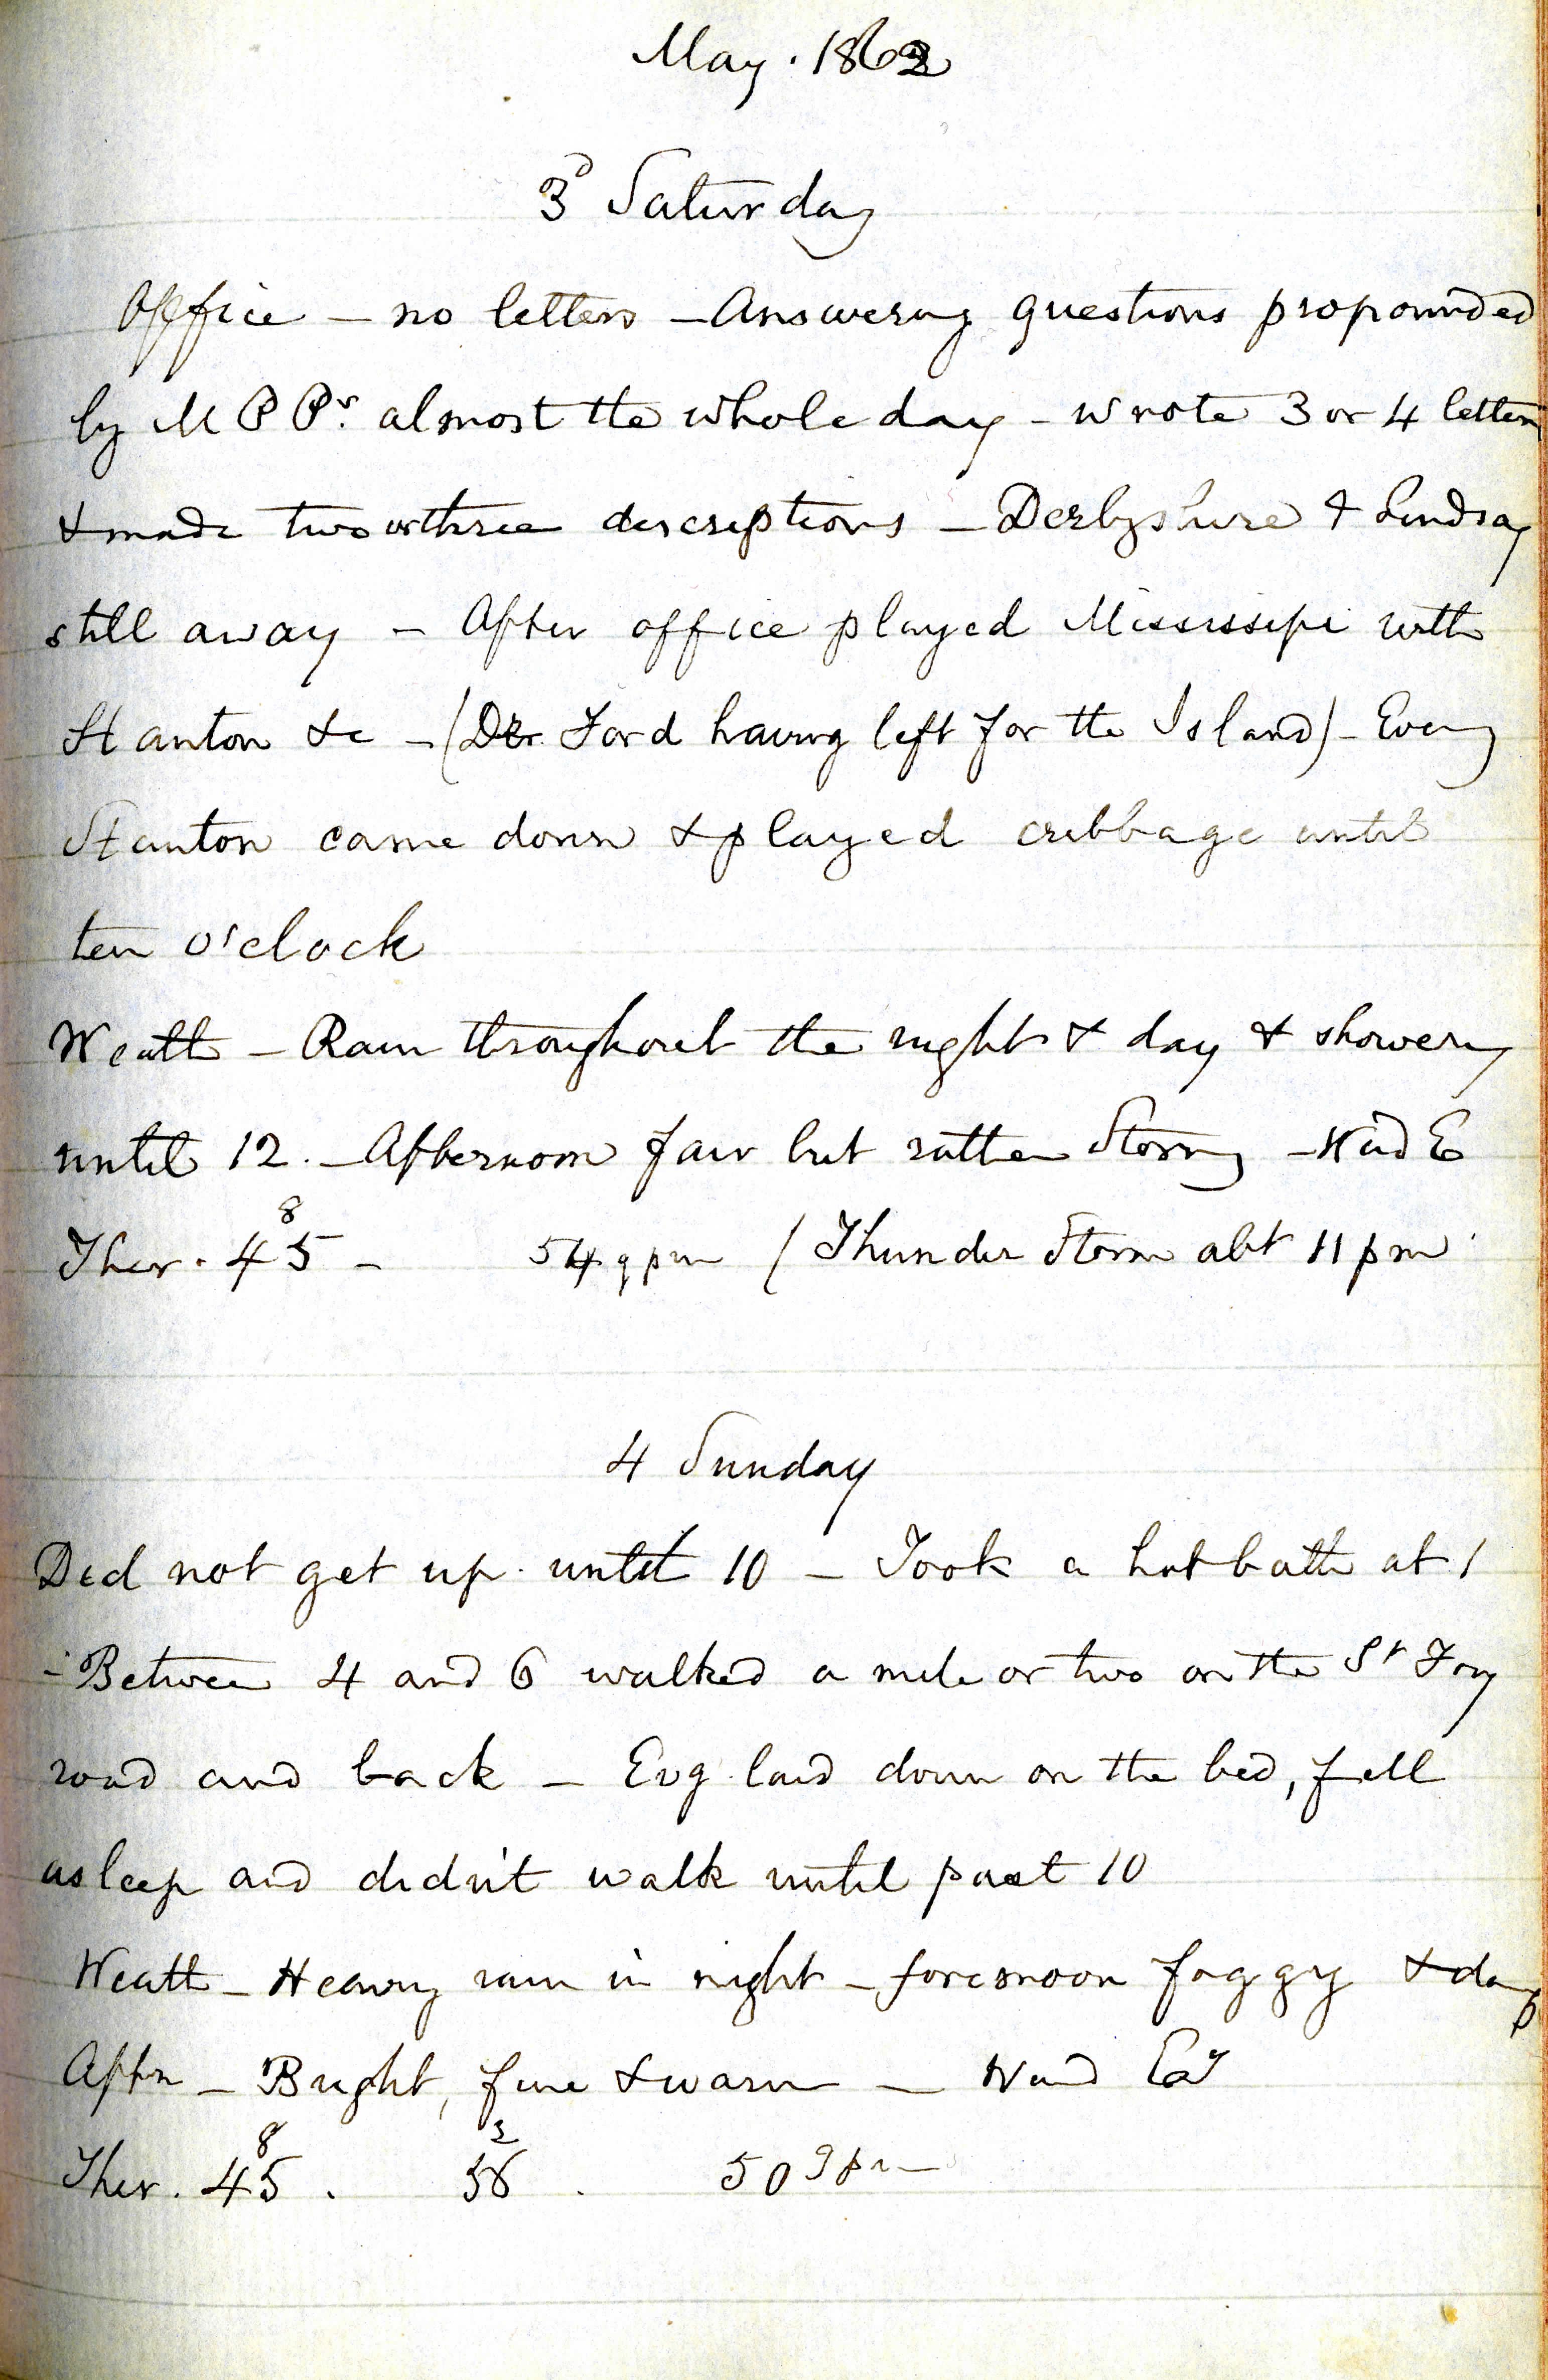 May. 1862
3d Saturday
Office - no letters - Answering questions propounded
by M P Ps. almost the whole day - wrote 3 or 4 letters
& made two or three descriptions - Derbyshire & Lindsay
still away - After office played Mississipi with
Stanton &c - (Dr. Ford having left for the Island) - Eveng
Stanton came down & played cribbage until
ten o'clock
Weath - Rain throughout the night & day & showery
until 12. - Afternoon fair but rather Stormy - Wind E
Ther. 45 8 - 54 9 pm / Thunder Storm abt 11 pm
4 Sunday
Did not get up until 10 - Took a hot bath at 1
- Between 4 and 6 walked a mile or two on the St Foy
road and back - Evg laid down on the bed, fell
asleep and didn't walk until past 10
Weath - Heavy rain in night - forenoon foggy & damp
Aftn - Bright, fine & warm - Wind Ey
Ther. 45 8 . 50 9 pm